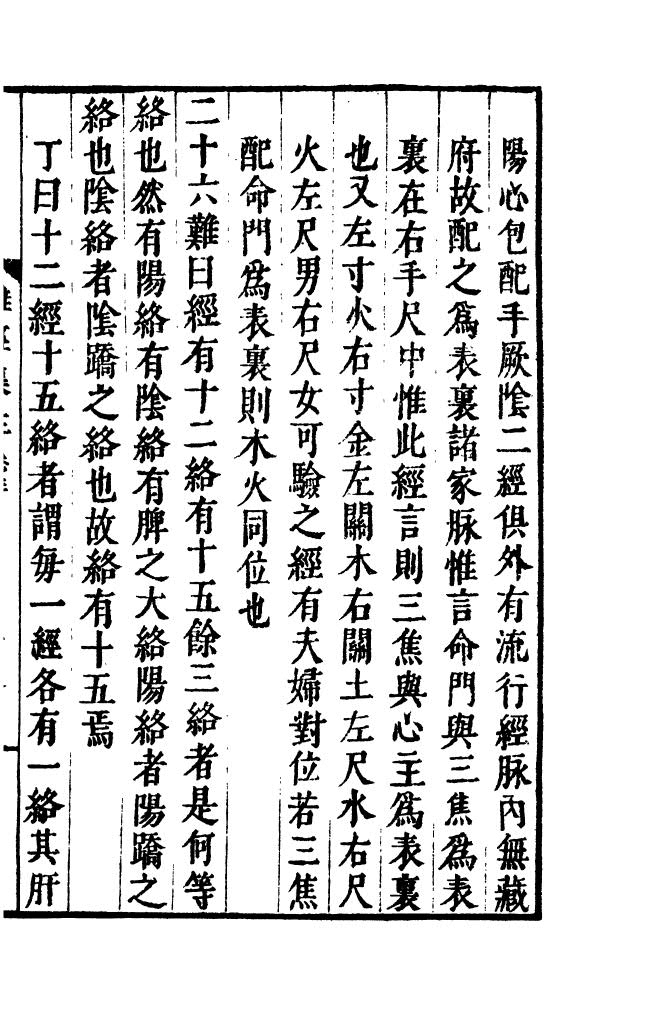 陽心包配手厥陰二經俱外有流行經脉內無藏
府故配之爲表裏諸家脉惟言命門與三焦爲表
裏在右手尺中惟此經言則三焦與心主爲表裏
也又左寸火右寸金左關木右關土左尺水右尺
火左尺男右尺女可驗之經有夫婦對位若三焦
配命門爲表裏則木火同位也
二十六難曰經有十二絡有十五餘三絡者是何等
絡也然有陽絡有陰絡有脾之大絡陽絡者陽蹻之
絡也陰絡者陰蹻之絡也故絡有十五焉
丁曰十二經十五絡者謂每一經各有一絡其肝